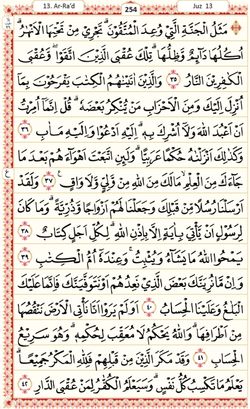 13. Ar-Ra'd
254
Juz 13
مَثَلُ الْجَنَّةِ الَّتِي وُعِدَ الْمُتَّقُونَ ۖ تَجْرِي مِنْ تَحْتِهَا الْأَنْهَارُ ۖ
أُكُلُهَا دَآئِمٌ وَظِلُّهَا ۚ تِلْكَ عُقْبَى الَّذِينَ اتَّقَوْا ۖ وَعُقْبَى
الْكٰفِرِينَ النَّارُ ٣٥ وَالَّذِينَ اٰتَيْنٰهُمُ الْكِتٰبَ يَفْرَحُونَ بِمَآ
أُنْزِلَ إِلَيْكَ وَمِنَ الْأَحْزَابِ مَنْ يُنْكِرُ بَعْضَهُ ۚ قُلْ إِنَّمَآ أُمِرْتُ
أَنْ أَعْبُدَ اللّٰهَ وَلَآ أُشْرِكَ بِهِ ۚ إِلَيْهِ أَدْعُوا وَإِلَيْهِ مَاٰبِ ٣٦
وَكَذٰلِكَ أَنْزَلْنٰهُ حُكْمًا عَرَبِيًّا ۚ وَلَئِنِ اتَّبَعْتَ أَهْوَآءَهُمْ بَعْدَ مَا
جَآءَكَ مِنَ الْعِلْمِ ۙ مَا لَكَ مِنَ اللّٰهِ مِنْ وَلِيٍّ وَلَا وَاقٍ ٣٧ وَلَقَدْ
أَرْسَلْنَا رُسُلًا مِنْ قَبْلِكَ وَجَعَلْنَا لَهُمْ أَزْوَاجًا وَذُرِّيَّةً ۚ وَمَا كَانَ
لِرَسُولٍ أَنْ يَأْتِيَ بِاٰيَةٍ إِلَّا بِإِذْنِ اللّٰهِ ۗ لِكُلِّ أَجَلٍ كِتَابٌ ٣٨
يَمْحُوا اللّٰهُ مَا يَشَآءُ وَيُثْبِتُ ۖ وَعِنْدَهُ أُمُّ الْكِتٰبِ ٣٩
وَإِنْ مَا نُرِيَنَّكَ بَعْضَ الَّذِي نَعِدُهُمْ أَوْ نَتَوَفَّيَنَّكَ فَإِنَّمَا عَلَيْكَ
الْبَلٰغُ وَعَلَيْنَا الْحِسَابُ ٤٠ أَوَلَمْ يَرَوْا أَنَّا نَأْتِي الْأَرْضَ نَنْقُصُهَا
مِنْ أَطْرَافِهَا ۚ وَاللّٰهُ يَحْكُمُ لَا مُعَقِّبَ لِحُكْمِهِ ۚ وَهُوَ سَرِيعُ
الْحِسَابِ ٤١ وَقَدْ مَكَرَ الَّذِينَ مِنْ قَبْلِهِمْ فَلِلّٰهِ الْمَكْرُ جَمِيعًا ۖ
يَعْلَمُ مَا تَكْسِبُ كُلُّ نَفْسٍ ۗ وَسَيَعْلَمُ الْكُفّٰرُ لِمَنْ عُقْبَى الدَّارِ ٤٢